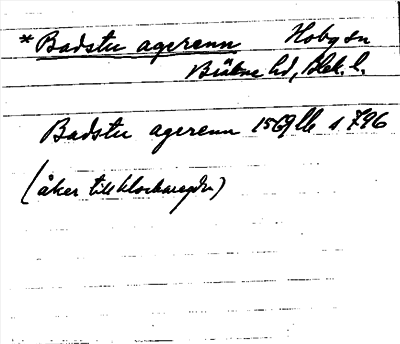 *Badstu agerenn Hoby sn
Bräkne hd, Blek. l.
Badstu agerenn 1569 lb s 796
(åker till klockaregdn)